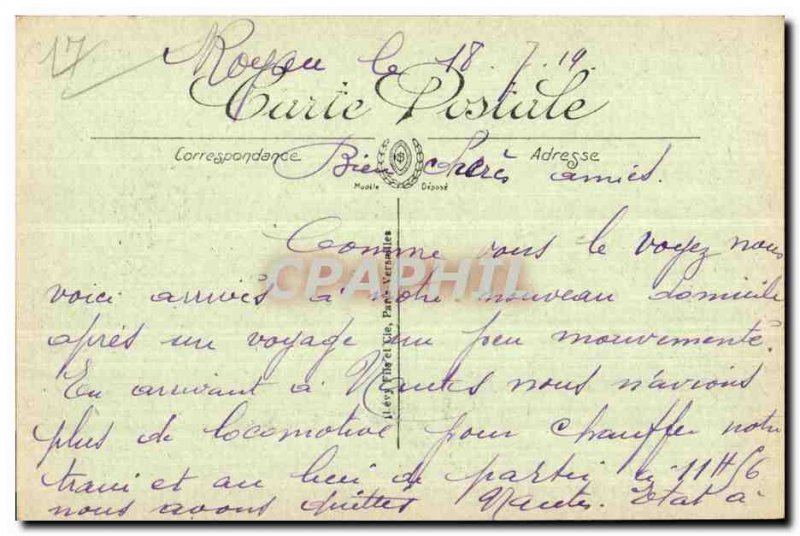 17
Royan le 18. 7. 19.
Carte Postale
Correspondance
Adresse
Bien chères amies.
Modèle Déposé
Lévy Fils et Cie, Paris-Versailles
CPAPHIL
Comme vous le voyez nous
voici arrivés à notre nouveau domicile
après un voyage un peu mouvementé.
En arrivant à Nantes nous n'avions
plus de locomotive pour chauffer notre
train et au lieu de partir à 11H56
nous avons quittés Nantes. Etat à